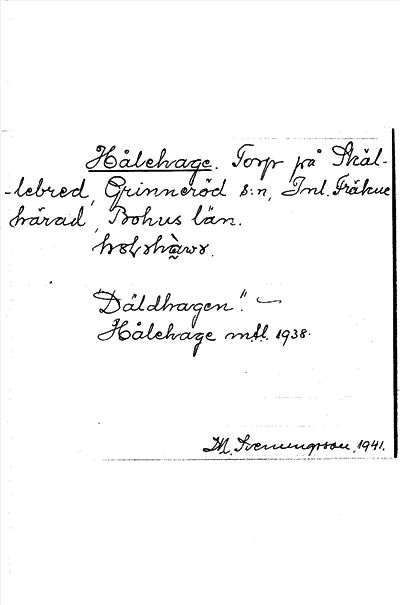 Hålehage. Torp på Skäl-
-lebred, Grinneröd s:n, Inl. Fräkne
härad, Bohus län.

"Däldhagen".
Hålehage mtl. 1938.
M. Svenungsson, 1941.